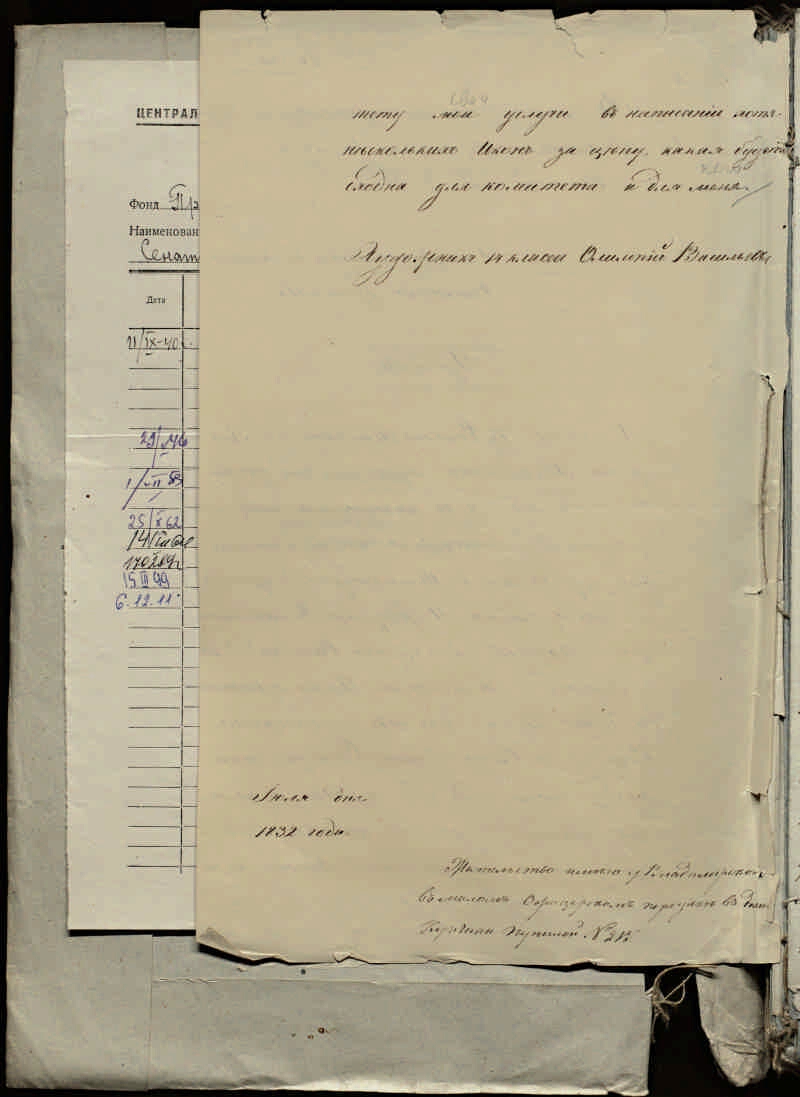 ЦЕНТРАЛ
Фонд Пр
Наименован
Сенат
Дата
21/IX-40
29/
25/X 62
15 III 99
6.12.11
тету мои услуги въ написаніи хотя
нѣсколькихъ Иконъ за цѣну какая будетъ
сходна для комитета и для меня
Художникъ 14 класса Олимпій Васильевъ
Іюля дня
1832 года
Жительство имѣю у Владимирской
въ маломъ Офицерскомъ переулкѣ въ домѣ
№